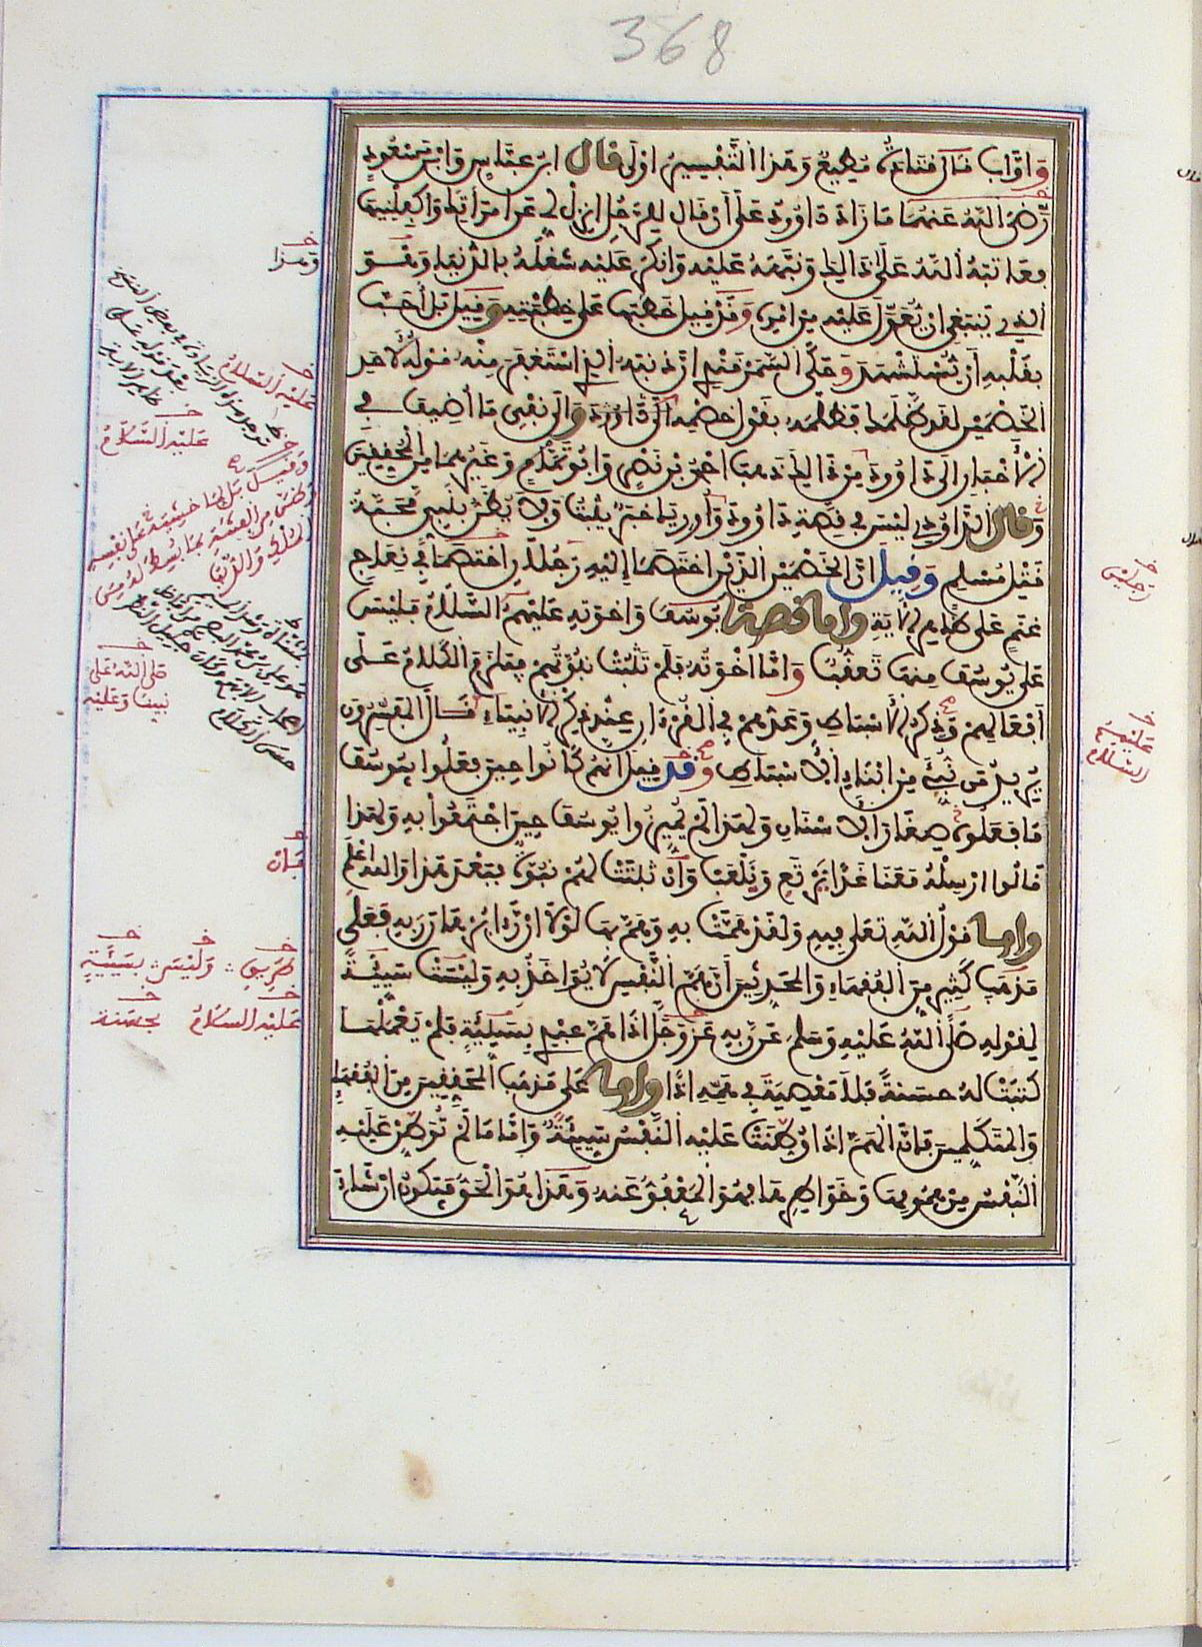 368
وَأَوَّابٌ قَالَ قَتَادَةُ مُطِيعٌ وَهَذَا التَّفْسِيرُ أَوْلَى قَالَ ابْنُ عَبَّاسٍ وَابْنُ مَسْعُودٍ
رَضِيَ اللَّهُ عَنْهُمَا مَا زَادَ دَاوُودُ عَلَى أَنْ قَالَ لِلرَّجُلِ انْزِلْ لِي عَنِ امْرَأَتِكَ وَاكْفِلْنِيهَا
فَعَاتَبَهُ اللَّهُ عَلَى ذَالِكَ وَنَبَّهَهُ عَلَيْهِ وَأَنْكَرَ عَلَيْهِ شُغْلَهُ بِالدُّنْيَا وَهُوَ
الَّذِي يَنْبَغِي أَنْ يُعَوَّلَ عَلَيْهِ مِنْ أَمْرِهِ وَقَدْ قِيلَ خَطَبَهَا عَلَى خِطْبَتِهِ وَقِيلَ بَلْ أَحَبَّ
بِقَلْبِهِ أَنْ يُسْتَشْهَدَ وَحَكَى السَّمَرْقَنْدِي أَنَّ ذَنْبَهُ الَّذِي اسْتَغْفَرَ مِنْهُ قَوْلُهُ لِأَحَدِ
الْخَصْمَيْنِ لَقَدْ ظَلَمَكَ فَظَلَّمَهُ بِقَوْلِ خَصْمِهِ وَإِلَى نَفْيِ مَا أُضِيفَ فِي
الْأَخْبَارِ إِلَى دَاوُودَ مِنْ ذَالِكَ ذَهَبَ أَحْمَدُ بْنُ نَصْرٍ وَأَبُو تَمَّامٍ وَغَيْرُهُمَا مِنَ الْمُحَقِّقِينَ
وَقَالَ الدَّاوُدِي لَيْسَ فِي قِصَّةِ دَاوُودَ وَأُورِيَا خَبَرٌ يَثْبُتُ وَلَا يُظَنُّ بِنَبِيٍّ مَحَبَّةُ
قَتْلِ مُسْلِمٍ وَقِيلَ إِنَّ الْخَصْمَيْنِ الَّذَيْنِ اخْتَصَمَا إِلَيْهِ رَجُلَانِ اخْتَصَمَا فِي نِعَاجِ
غَنَمٍ عَلَى ظَاهِرِ الْآيَةِ وَأَمَّا قِصَّةُ يُوسُفَ وَإِخْوَتِهِ عَلَيْهِمُ السَّلَامُ فَلَيْسَ
عَلَى يُوسُفَ مِنْهَا تَعَقُّبٌ وَأَمَّا إِخْوَتُهُ فَلَمْ تَثْبُتْ نُبُوَّتُهُمْ فَيَلْزَمَ الْكَلَامُ عَلَى
أَفْعَالِهِمْ وَذِكْرُ الْأَسْبَاطِ وَعَدُّهُمْ فِي الْقُرْءَانِ عِنْدَ ذِكْرِ الْأَنْبِيَاءِ قَالَ الْمُفَسِّرُونَ
يُرِيدُ مَنْ نُبِّئَ مِنْ أَبْنَاءِ الْأَسْبَاطِ وَقَدْ قِيلَ إِنَّهُمْ كَانُوا حِينَ فَعَلُوا بِيُوسُفَ
مَا فَعَلُوهُ صِغَارَ الْأَسْنَانِ وَلِهَذَا لَمْ يُمَيِّزُوا يُوسُفَ حِينَ اجْتَمَعُوا بِهِ وَلِهَذَا
قَالُوا أَرْسِلْهُ مَعَنَا غَدًا نَرْتَعْ وَنَلْعَبْ وَإِنْ ثَبَتَتْ لَهُمْ نُبُوَّةٌ فَبَعْدَ هَذَا وَاللَّهُ أَعْلَمُ
وَأَمَّا قَوْلُ اللَّهِ تَعَلَى فِيهِ وَلَقَدْ هَمَّتْ بِهِ وَهَمَّ بِهَا لَوْلَا أَنْ رَءَا بُرْهَانَ رَبِّهِ فَعَلَى
مَذْهَبِ كَثِيرٍ مِنَ الْفُقَهَاءِ وَالْمُحَدِّثِينَ أَنَّ هَمَّ النَّفْسِ لَا يُوَاخَذُ بِهِ وَلَيْسَتْ سَيِّئَةً
لِقَوْلِهِ صَلَّى اللَّهُ عَلَيْهِ وَسَلَّمَ عَنْ رَبِّهِ عَزَّ وَجَلَّ إِذَا هَمَّ عَبْدِي بِسَيِّئَةٍ فَلَمْ يَعْمَلْهَا
كُتِبَتْ لَهُ حَسَنَةً فَلَا مَعْصِيَةَ فِي هَمِّهِ إِذًا وَأَمَّا عَلَى مَذْهَبِ الْمُحَقِّقِينَ مِنَ الْفُقَهَاءِ
وَالْمُتَكَلِّمِينَ فَإِنَّ الْهَمَّ إِذَا وُطِّنَتْ عَلَيْهِ النَّفْسُ سَيِّئَةٌ وَأَمَّا مَا لَمْ تُوَطَّنْ عَلَيْهِ
النَّفْسُ مِنْ هُمُومِهَا وَخَوَاطِرِهَا فَهُوَ الْمَعْفُوُّ عَنْهُ وَهَذَا هُوَ الْحَقُّ فَيَكُونُ إِنْ شَاءَ
وَهَذَا
عَلَيْهِ السَّلَامُ
عَلَيْهِ السَّلَامُ
وَقِيلَ بَلْ لِمَا خَشِيَهُ عَلَى نَفْسِهِ
وَظَنَّ مِنَ الْفِتْنَةِ بِمَا بُسِطَ لَهُ مِنَ
الْمُلْكِ وَالدُّنْيَا
صَلَّى اللَّهُ عَلَى
نَبِيِّنَا وَعَلَيْهِ
رَجُلَيْنِ
عَلَيْهِمُ
السَّلَامُ
فَإِنْ
طَرِيقِ وَلَيْسَ بِسَيِّئَةٍ
عَلَيْهِ السَّلَامُ بِحَسَنَةٍ